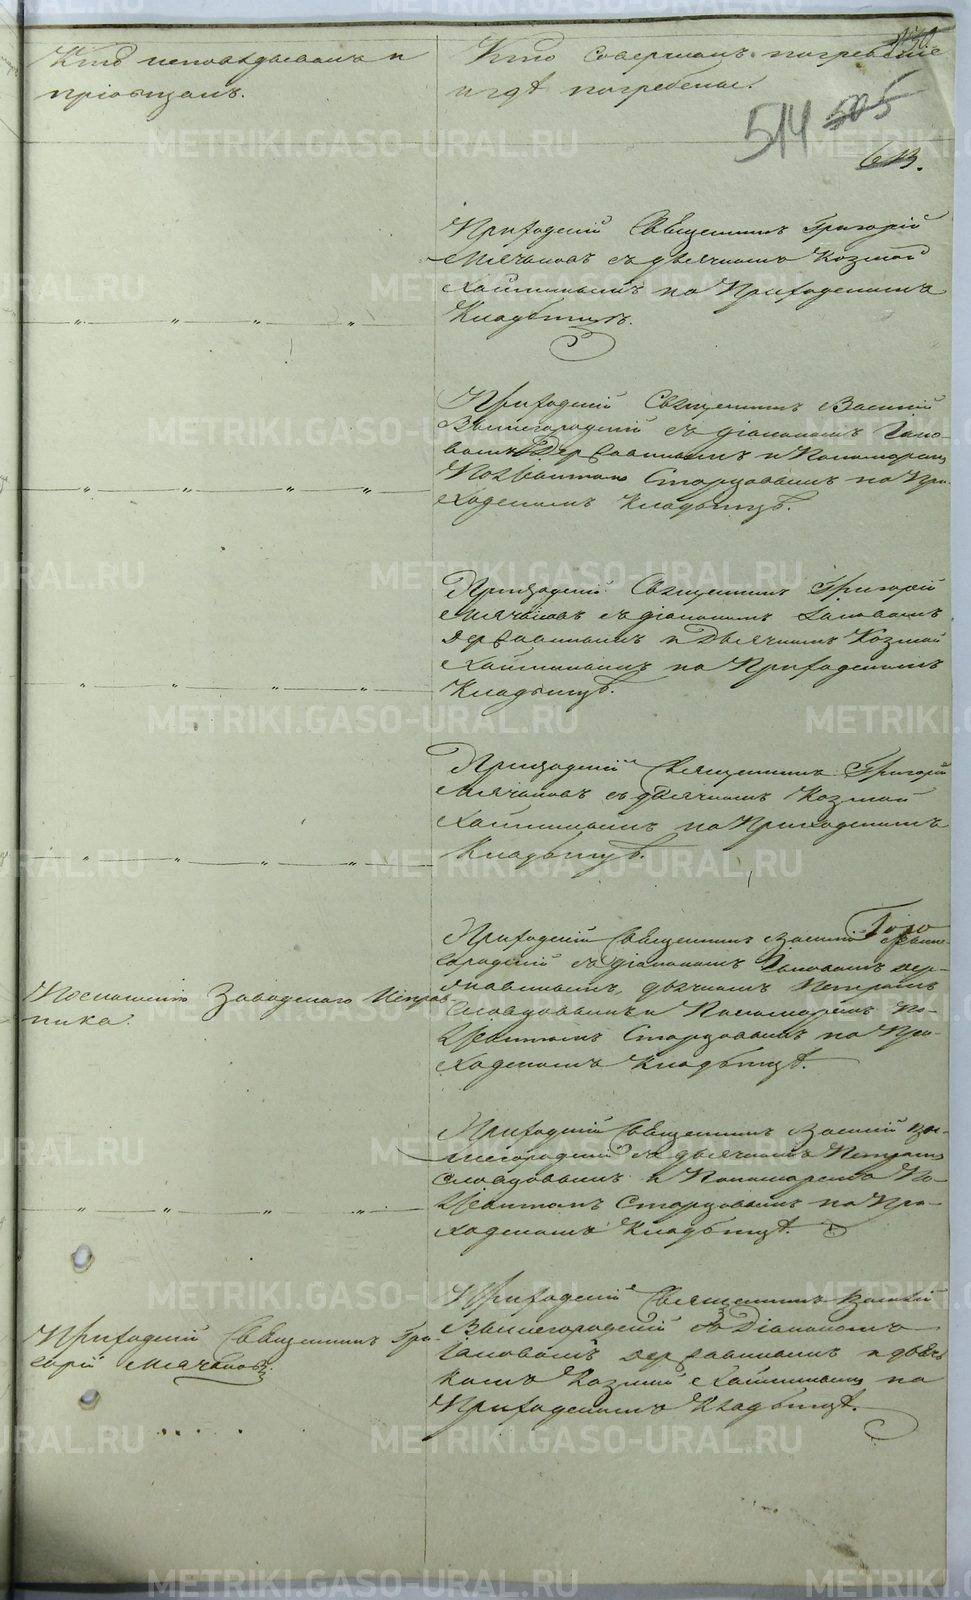 Кто исповѣдывалъ и
пріобщалъ.
Кто совершалъ погребеніе
и гдѣ погребены.
514 505
613.
Приходскій Священникъ Григорій
Мячковъ съ дьячкомъ Козмой
на Приходскомъ
Кладбищѣ.
Приходскій Священникъ Василій
Вышегородскій съ діакономъ Іако-
вомъ Державинымъ и Пономаремъ
Сторцовымъ на При-
ходскомъ Кладбищѣ.
Приходскій Священникъ Григорій
Мячковъ съ діакономъ Іаковомъ
Державинымъ и Дьячкомъ Козмой
на Приходскомъ
Кладбищѣ.
Приходскій Священникъ Григорій
Мячковъ съ дьячкомъ Козмой
на Приходскомъ
Кладбищѣ.
По сношенію Заводскаго Исправ-
ника.
Приходскій Священникъ Василій Выше-
городскій съ діакономъ Іаковомъ Дер-
жавинымъ, дьячкомъ Петромъ
Словцовымъ и Пономаремъ
Сторцовымъ на При-
ходскомъ Кладбищѣ.
Приходскій Священникъ Василій Вы-
шегородскій съ дьячкомъ Петромъ
Словцовымъ и Пономаремъ
Сторцовымъ на При-
ходскомъ Кладбищѣ.
Приходскій Священникъ Гри-
горій Мячковъ.
Приходскій Священникъ Василій
Вышегородскій съ Діакономъ
Іаковомъ Державинымъ и дьяч-
комъ Козмой на
Приходскомъ Кладбищѣ.
METRIKI.GASO-URAL.RU